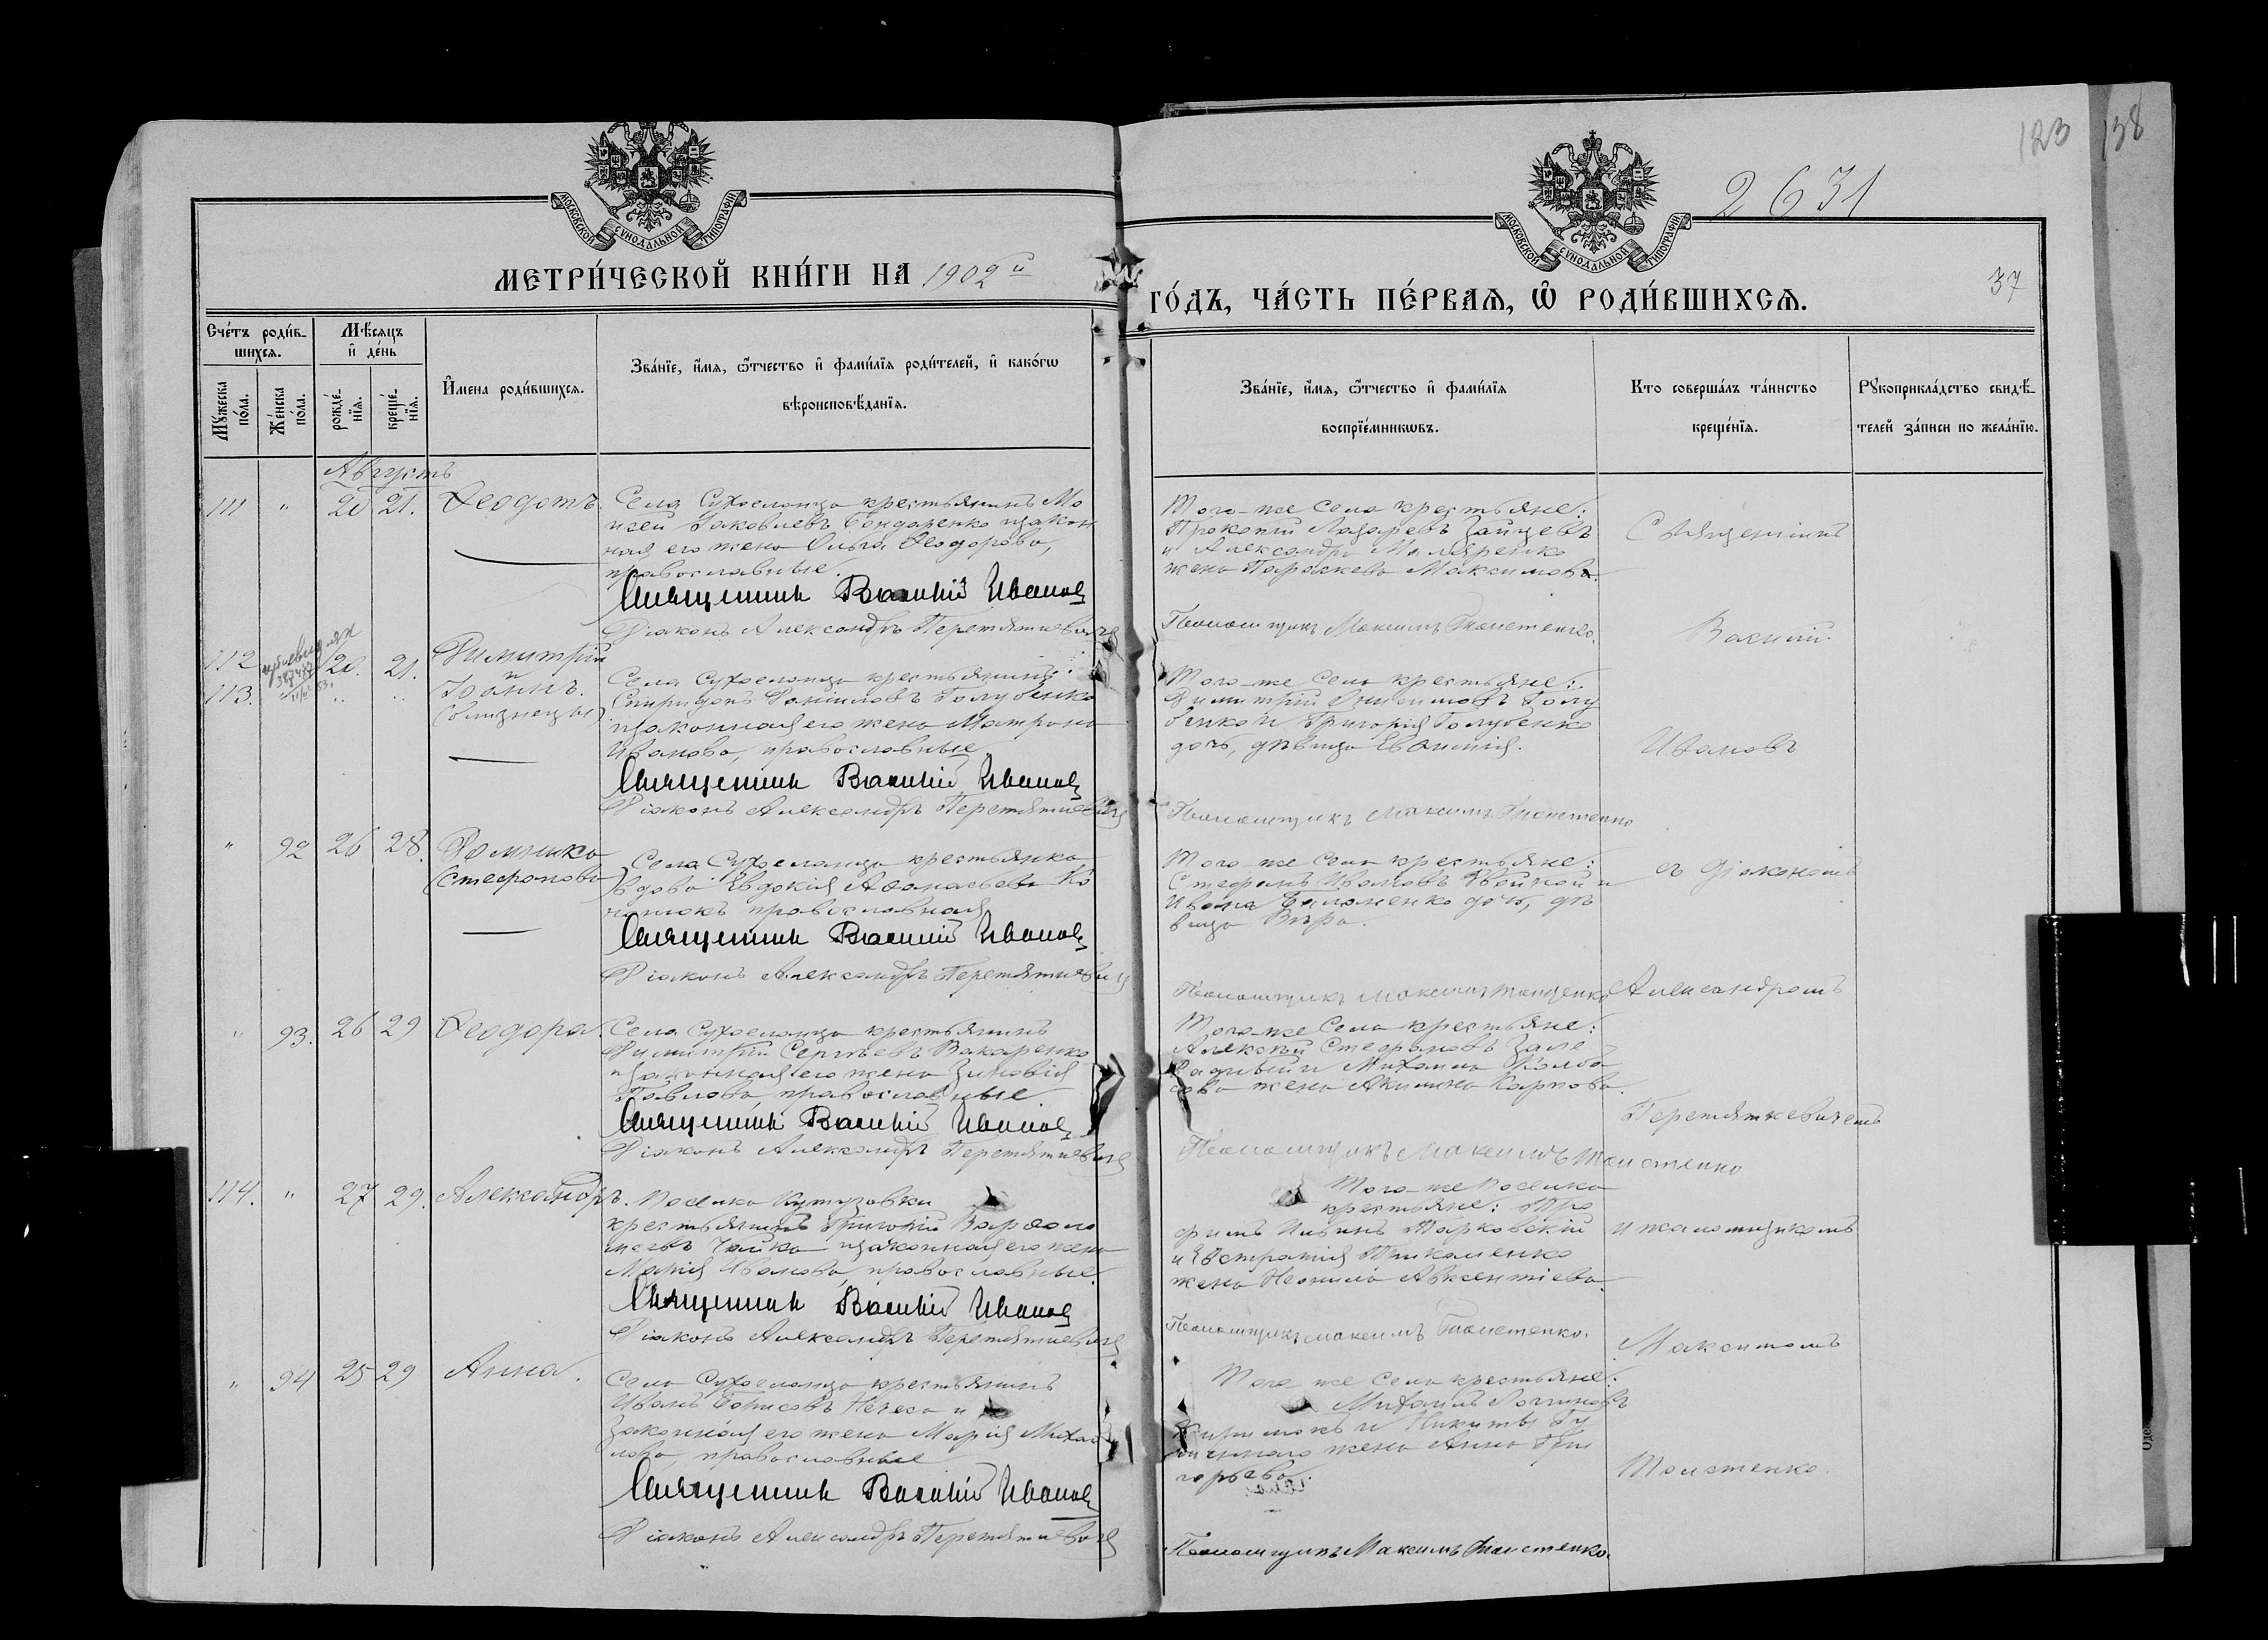 123 138
2631
37
МОСКОВСКОЙ СѴНОДАЛЬНОЙ ТИПОГРАФІИ
МОСКОВСКОЙ СѴНОДАЛЬНОЙ ТИПОГРАФІИ
МЕТРИ́ЧЕСКОЙ КНИ́ГИ НА 1902й
ГО́ДЪ, ЧА́СТЬ ПЕ́РВАѦ, Ѡ҆ РОДИ́ВШИХСѦ.
Сче́тъ роди́в-
шихсѧ.
Мꙋ́жеска по́ла.
Же́нска по́ла.
Мѣ́сѧцъ
и҆ де́нь
рожде́-нїѧ.
креще́-нїѧ.
И҆мена роди́вшихсѧ.
Зва́нїе, и҆́мѧ, ѻ҆́тчество и҆ фами́лїѧ роди́телей, и҆ како́гѡ
вѣроисповѣ́данїѧ.
Зва́нїе, и҆́мѧ, ѻ҆́тчество и҆ фами́лїѧ
воспрїе́мникѡвъ.
Кто соверша́лъ та́инство
креще́нїѧ.
Рꙋкоприкла́дство свидѣ́-
телей за́писи по жела́нїю.
Августъ
111 " 20 21. Ѳеодотъ.
Села Сухоеланца крестьянинъ Мо
исей Іаковлевъ Бондаренко и закон
ная его жена Ольга Ѳеодорова,
православные.
Священникъ Василій Ивановъ
Діаконъ Александръ Перетяткевичъ
Того-же села крестьяне:
Прокопій Лазаревъ Зайцевъ
и Александра Маляренко
жена Параскева Максимова.
Псаломщикъ Максимъ Толстенко.
Священникъ
Василій
Ивановъ
съ діакономъ
Александромъ
Перетяткевичемъ
и псаломщикомъ
Максимомъ
Толстенко.
112 20. 21. Димитрій
113. " " и
Іоаннъ.
(близнецы)
Села Сухоеланца крестьянинъ
Спиридонъ Даніиловъ Голубенко
и законная его жена Матрона
Иванова, православные.
Священникъ Василій Ивановъ
Діаконъ Александръ Перетяткевичъ
Того-же села крестьяне:
Димитрій Онисимовъ Голу
бенко и Григорія Голубенко
дочь, дѣвица Евфимія.
Псаломщикъ Максимъ Толстенко
" 92 26 28. Домника
(Стефанова)
Села Сухоеланца крестьянка,
вдова Евдокія Аѳанасьева Ко
православная
Священникъ Василій Ивановъ
Діаконъ Александръ Перетяткевичъ
Того-же села крестьяне:
Стефанъ Ивановъ и
Ивана дочь, дѣ
вица Вѣра.
Псаломщикъ Максимъ Толстенко
" 93. 26 29 Ѳеодора.
Села Сухоеланца крестьянинъ
Димитрій Сергѣевъ Вакаренко
и законная его жена Зиновія
Павлова, православные
Священникъ Василій Ивановъ
Діаконъ Александръ Перетяткевичъ
Того-же села крестьяне:
Алексѣй Стефановъ
и Михаила
жена Акилина Карпова.
Псаломщикъ Максимъ Толстенко
114. " 27 29. Александръ.
Поселка Кутузовки
крестьянинъ Григорій Варѳоло
меевъ Чайка и законная его жена
Марія Иванова, православные.
Священникъ Василій Ивановъ
Діаконъ Александръ Перетяткевичъ
Того-же поселка
крестьяне: Тро
фимъ Ильинъ Тарковскій
и Евстратія
жена Неонила Авксентіева.
Псаломщикъ Максимъ Толстенко.
" 94 25 29 Анна.
Села Сухоеланца крестьянинъ
Иванъ Борисовъ Нечеса и
законная его жена Марія Михаи
лова, православные
Священникъ Василій Ивановъ
Діаконъ Александръ Перетяткевичъ
Того же села крестьяне:
Михаилъ Логиновъ
и Никиты
жена Анна Гри
горьева.
Псаломщикъ Максимъ Толстенко.